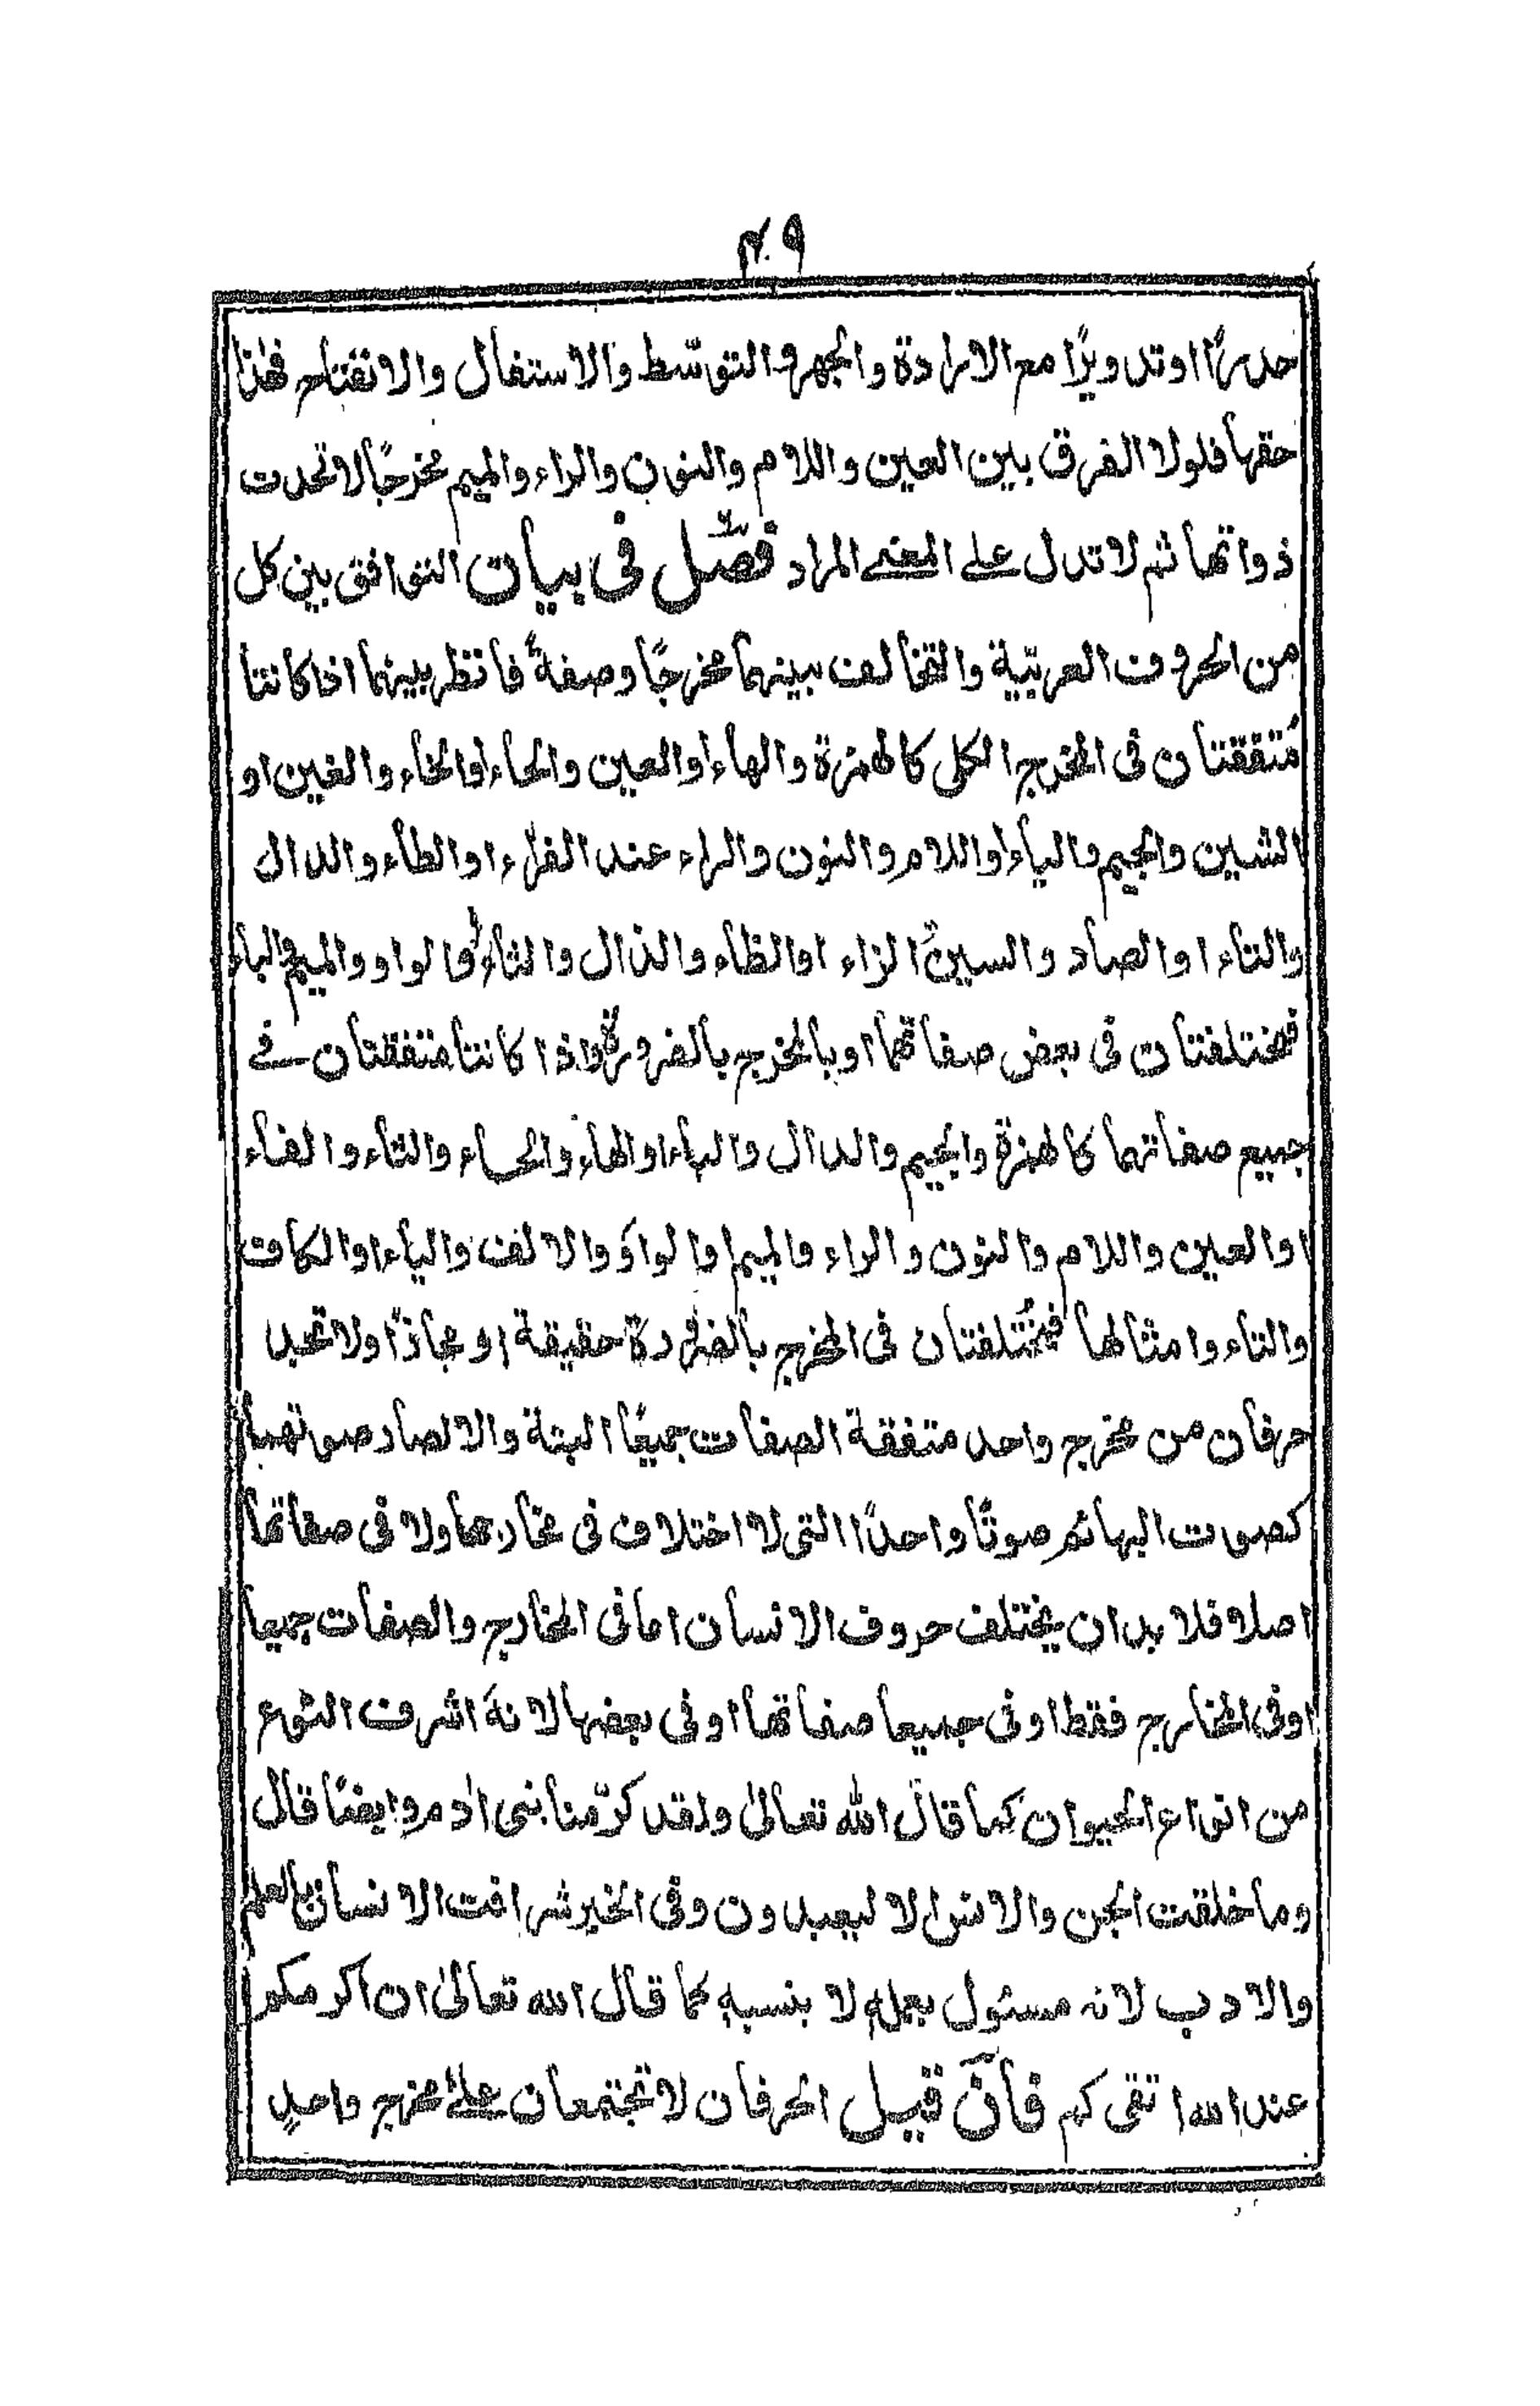 ٤٠٩
حدرًا او تدويرًا مع الارادة والجهر والتوسّط والاستفال والانفتاح فهٰذا
حقها فلولا الفرق بين العين واللام والنون والراء والميم مخرجًا لاتحدت
ذواتها ثم لا تدل على المعنى المراد فصل فى بيان التوافق بين كل
من الحروف العربيّة والتخالف بينهما مخرجًا وصفةً فانظر بينهما اذا كانتا
مُتفقتان فى المخرج الكل كالهمزة والهاء او العين والحاء او الخاء والغين او
الشين والجيم والياء او اللام والنون والراء عند الفراء او الطاء والدال
والتاء او الصاد والسين الزاء او الظاء والذال والثاء او الواو والميم والباء
فمختلفتان فى بعض صفاتهما او بالمخرج بالضرورة واذا كانتا متفقتان فى
جميع صفاتهما كالهمزة والجيم والدال والباء او الهاء والحاء والثاء والفاء
او العين واللام والنون والراء والميم او الواو والالف والياء او الكاف
والتاء وامثالها فمختلفتان فى المخرج بالضرورة حقيقة او مجازًا ولا تجد
حرفان من مخرج واحد متفقة الصفات جميعًا البتة والا لصار صوتهما
كصوت البهائم صوتًا واحدًا التى لا اختلاف فى مخارجها ولا فى صفاتها
اصلا فلا بد ان يختلف حروف الانسان اما فى المخارج والصفات جميعا
او فى المخارج فقط او فى جميعا صفاتها او فى بعضها لانهٗ اشرف النوع
من انواع الحيوان كما قال الله تعالىٰ ولقد كرّمنا بنى اٰدم وايضًا قال
وما خلقت الجن والانس الا ليعبدون وفى الخير شرافت الانسان بالعلم
والادب لانه مسئول بعملهٖ لا بنسبهٖ كما قال الله تعالىٰ ان اكرمكم
عند الله اتقى كم فان قيل الحرفان لا تجتمعان على مخرج واحدٍ